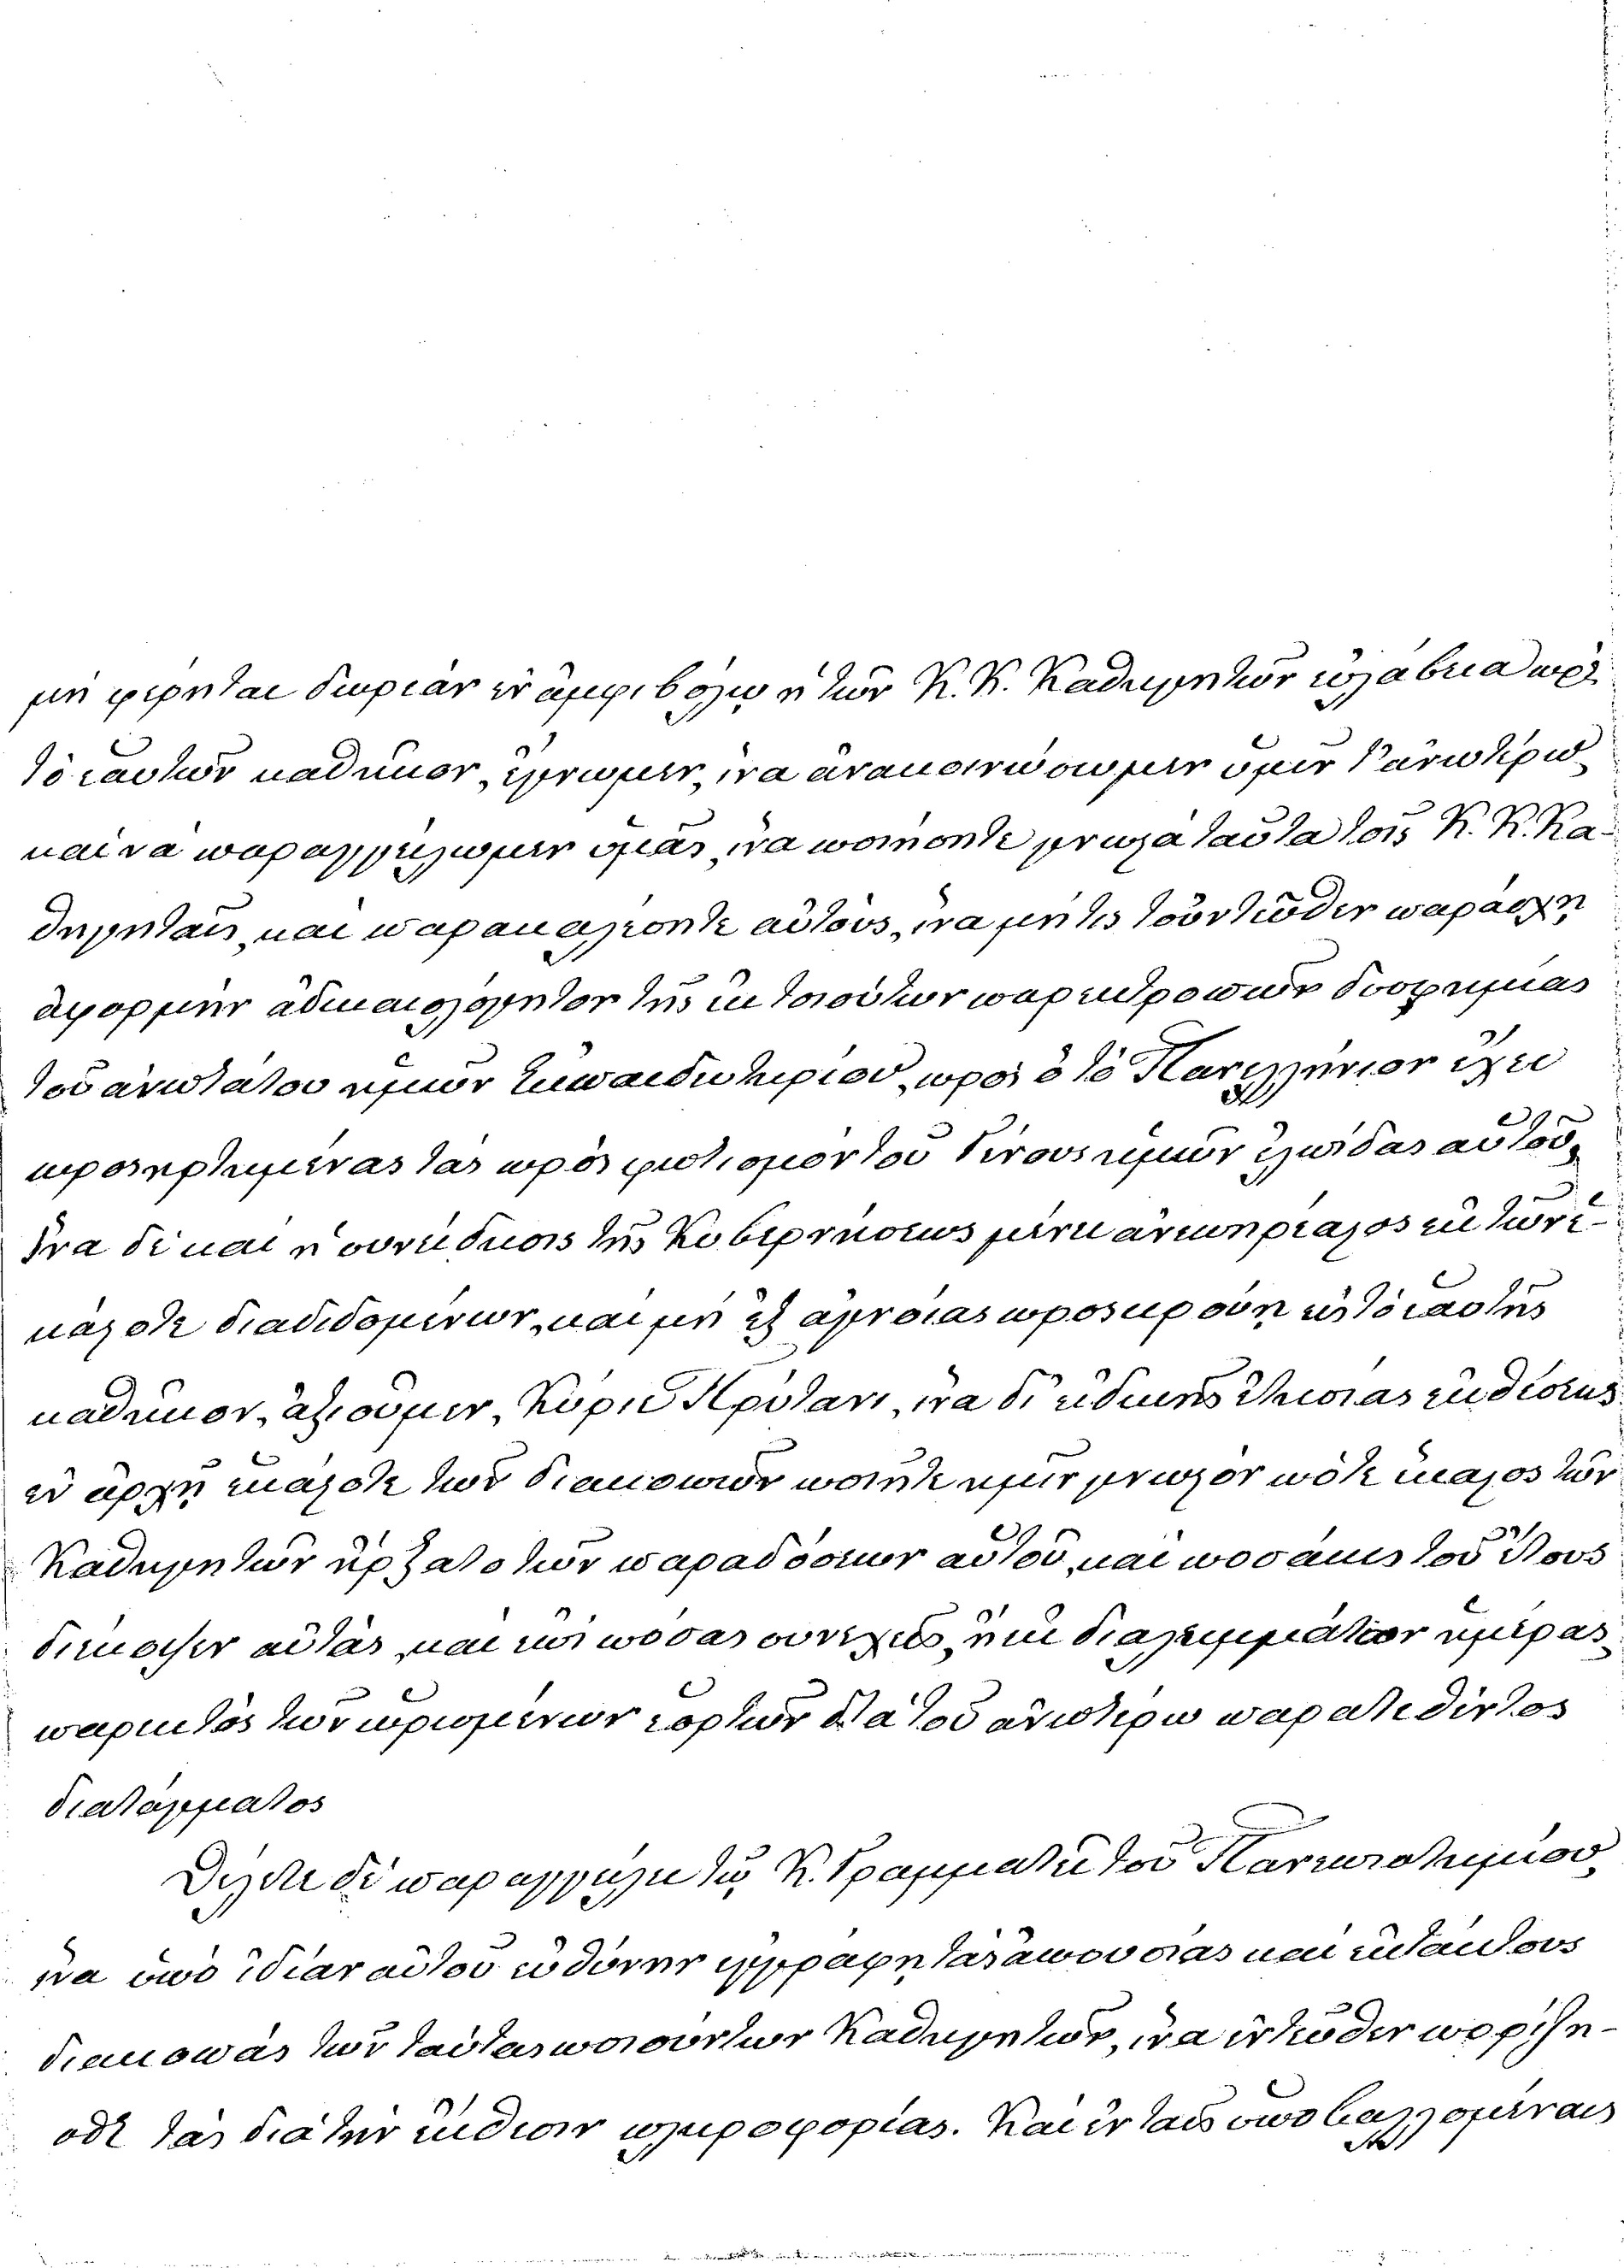 μὴ φέρηται δωρεὰν ἐν ἀμφιβόλῳ ἡ τῶν Κ. Κ. Καθηγητῶν εὐλάβεια πρὸς
τὸ ἑαυτῶν καθῆκον, ἔγνωμεν, ἵνα ἀνακοινώσωμεν ὑμῖν τ' ἀνωτέρω
καὶ νὰ παραγγείλωμεν ὑμᾶς, ἵνα ποιήσητε γνωστὰ ταῦτα τοῖς Κ. Κ. Κα-
θηγηταῖς, καὶ παρακαλέσητε αὐτοὺς, ἵνα μή τις τοὐντεῦθεν παράσχῃ
ἀφορμὴν ἀδικαιολόγητον τῆς ἐκ τοιούτων παρεκτροπῶν δυσφημίας
τοῦ ἀνωτάτου ἡμῶν Ἐκπαιδευτηρίου, πρὸς ὃ τὸ Πανελλήνιον ἔχει
προσηρτημένας τὰς πρὸς φωτισμὸν τοῦ Γένους ἡμῶν ἐλπίδας αὐτοῦ,
Ἵνα δὲ καὶ ἡ συνείδησις τῆς Κυβερνήσεως μένῃ ἀνεπηρέαστος ἐκ τῶν ἑ-
κάστοτε διαδιδομένων, καὶ μὴ ἐξ ἀγνοίας προσκρούῃ εἰς τὸ ἑαυτῆς
καθῆκον, ἀξιοῦμεν, Κύριε Πρύτανι, ἵνα δι' εἰδικῆς ἐτησίας ἐκθέσεως
ἐν ἀρχῇ ἑκάστοτε τῶν διακοπῶν ποιῆτε ἡμῖν γνωστὸν πότε ἕκαστος τῶν
Καθηγητῶν ἤρξατο τῶν παραδόσεων αὐτοῦ, καὶ ποσάκις τοῦ ἔτους
διέκοψεν αὐτὰς, καὶ ἐπὶ πόσας συνεχῶς, ἢ ἐκ διαλειμμάτων ἡμέρας,
παρεκτὸς τῶν ὡρισμένων ἑορτῶν διὰ τοῦ ἀνωτέρω παρατεθέντος
διατάγματος
Θέλετε δὲ παραγγείλει τῷ Κ. Γραμματεῖ τοῦ Πανεπιστημίου,
ἵνα ὑπὸ ἰδίαν αὐτοῦ εὐθύνην ἐγγράφῃ τὰς ἀπουσίας καὶ ἐκτάκτους
διακοπὰς τῶν ταύτας ποιούντων Καθηγητῶν, ἵνα ἐντεῦθεν πορίζη-
σθε τὰς διὰ τὴν ἔκθεσιν πληροφορίας. Καὶ ἐν ταῖς ὑποβαλλομέναις